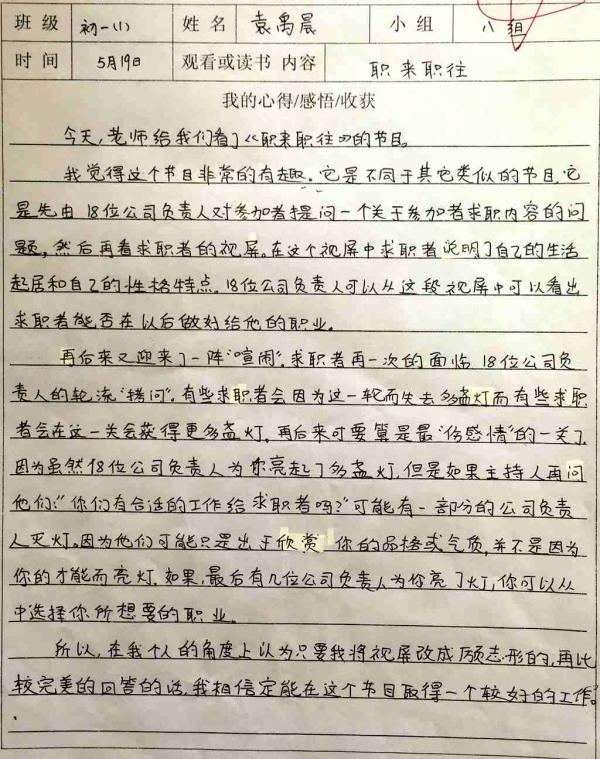 班级 初一(1) 姓名 袁禹晨 小组 八组
时间 5月19日 观看或读书内容 职来职往
我的心得/感悟/收获
今天,老师给我们看了《职来职往》的节目。
我觉得这个节目非常的有趣。它是不同于其它类似的节目,它
是先由18位公司负责人对参加者提问一个关于参加者求职内容的问
题,然后再看求职者的视屏。在这个视屏中求职者说明了自己的生活
起居和自己的性格特点。18位公司负责人可以从这段视屏中可以看出
求职者能否在以后做好给他的职业。
再后来又迎来了一阵“喧闹”。求职者再一次的面临18位公司负
责人的轮流“拷问”。有些求职者会因为这一轮而失去多盏灯而有些求职
者会在这一关会获得更多盏灯。再后来可要算是最“伤感情”的一关了,
因为虽然18位公司负责人为你亮起了多盏灯,但是如果主持人再问
他们:“你们有合适的工作给求职者吗?”可能有一部分的公司负责
人灭灯。因为他们可能只是出于欣赏你的品格或气质,并不是因为
你的才能而亮灯。如果,最后有几位公司负责人为你亮了灯,你可以从
中选择你所想要的职业。
所以,在我个人的角度上认为只要我将视屏改成励志形的,再比
较完美的回答的话,我相信定能在这个节目取得一个较好的工作。